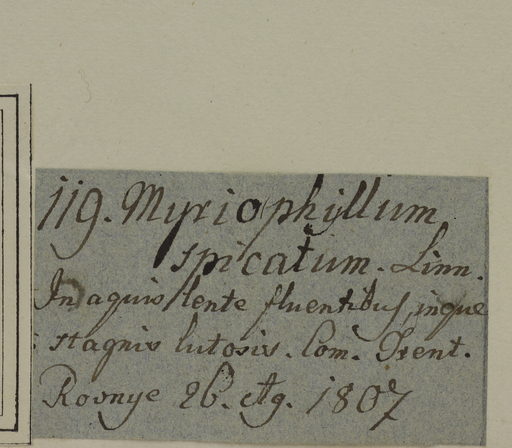 119. Myriophyllum
spicatum. Linn.
In aquis lente fluentibus, inque
stagnis lutosis. Com. Trent.
Rosnye 26. Ag. 1807